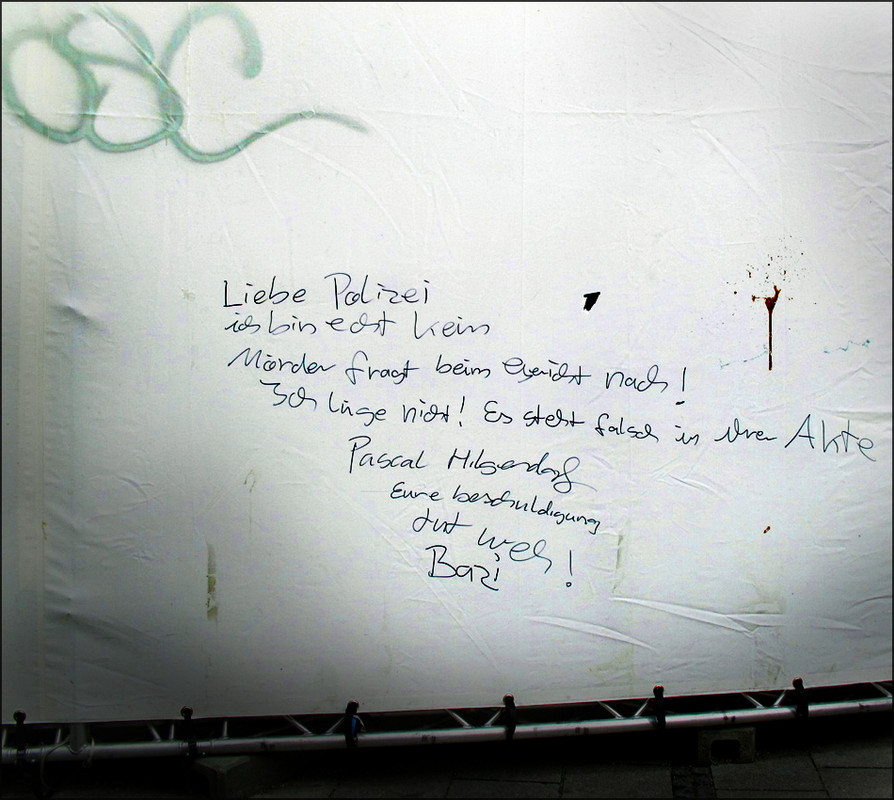 OSC
Liebe Polizei
ich bin echt kein
Mörder fragt beim Gericht nach!
Ich lüge nicht! Es steht falsch in ihrer Akte
Pascal Hilgendorf
Eure beschuldigung
tut weh!
Bazi